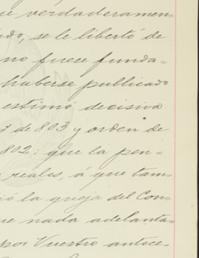 verdaderamen
se le libertó de
no fuese funda-
haberse publicado
estimó decisiva
de 803 y orden de
802: que la pen-
reales, á que tam
la queja del Con
nada adelanta-
por Vuestro antece-